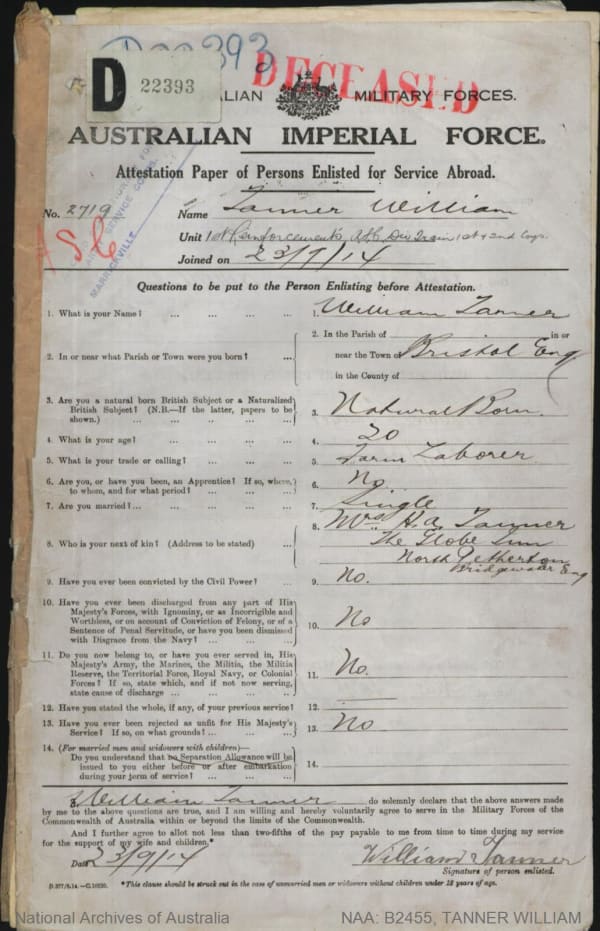 D22393
D 22393
DECEASED
ALIAN MILITARY FORCES.
AUSTRALIAN IMPERIAL FORCE.
Attestation Paper of Persons Enlisted for Service Abroad.
No. 2719
Name Tanner William
ASC
MARRICKVILLE
Unit 1st Reinforcements ASC Div Train 1st & 2nd Coys.
Joined on 23/9/14
Questions to be put to the Person Enlisting before Attestation.
1. What is your Name? ... ... ... 1. William Tanner
2. In or near what Parish or Town were you born? ... 2. In the Parish of in or
near the Town of Bristol Eng
in the County of
3. Are you a natural born British Subject or a Naturalized
British Subject? (N.B.—If the latter, papers to be
shown.) ... ... ... ... 3. Natural Born.
4. What is your age? ... ... ... 4. 20
5. What is your trade or calling? ... ... ... 5. Farm Laborer
6. Are you, or have you been, an Apprentice? If so, where,
to whom, and for what period? ... ... ... 6. No
7. Are you married? ... ... ... ... 7. Single
8. Who is your next of kin? (Address to be stated) ... 8. Mrs H.A. Tanner
The Globe Inn
North Petherton
Bridgewater Eng
9. Have you ever been convicted by the Civil Power? ... 9. No.
10. Have you ever been discharged from any part of His
Majesty's Forces, with Ignominy, or as Incorrigible and
Worthless, or on account of Conviction of Felony, or of a
Sentence of Penal Servitude, or have you been dismissed
with Disgrace from the Navy? ... ... ... 10. No
11. Do you now belong to, or have you ever served in, His
Majesty's Army, the Marines, the Militia, the Militia
Reserve, the Territorial Force, Royal Navy, or Colonial
Forces? If so, state which, and if not now serving,
state cause of discharge ... ... ... ... 11. No.
12. Have you stated the whole, if any, of your previous service? 12.
13. Have you ever been rejected as unfit for His Majesty's
Service? If so, on what grounds? ... ... ... 13. No
14. (For married men and widowers with children)—
Do you understand that no Separation Allowance will be
issued to you either before or after embarkation
during your term of service? ... ... ... 14.
I, William Tanner do solemnly declare that the above answers made
by me to the above questions are true, and I am willing and hereby voluntarily agree to serve in the Military Forces of the
Commonwealth of Australia within or beyond the limits of the Commonwealth.
And I further agree to allot not less than two-fifths of the pay payable to me from time to time during my service
for the support of my wife and children.*
Date 23/9/14 William Tanner
Signature of person enlisted.
D.377/8.14.—C.10220. *This clause should be struck out in the case of unmarried men or widowers without children under 18 years of age.
National Archives of Australia NAA: B2455, TANNER WILLIAM